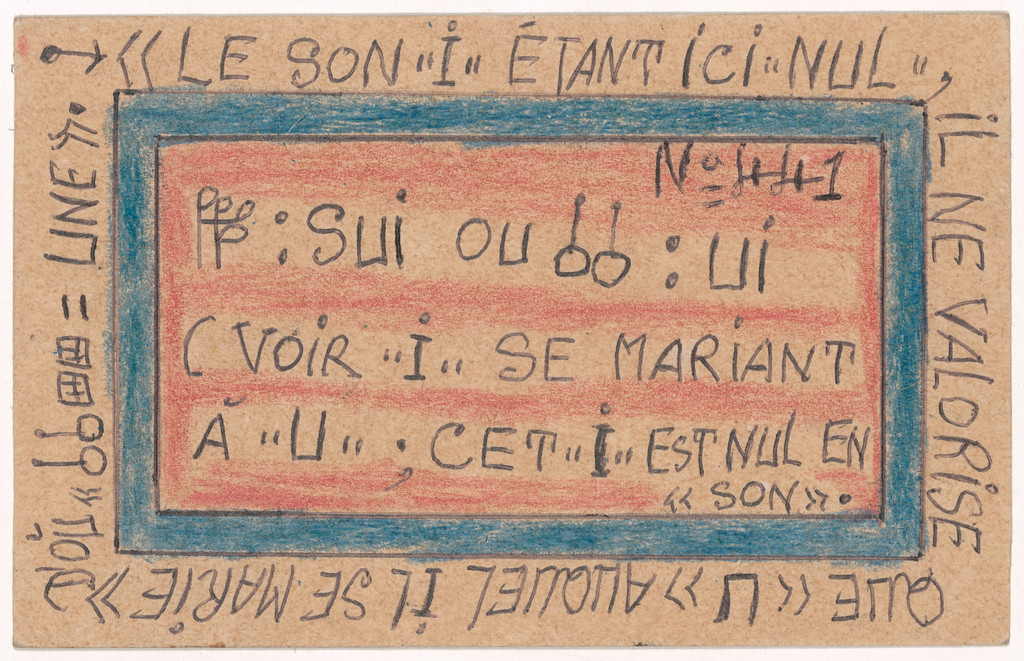 « LE SON "İ" ÉTANT ICI "NUL",
IL NE VALORISE
QUE « U » AUQUEL IL SE MARIE »
D'OÙ «
= UNE ».
N° 441
: SUI OU : UI
( VOIR "I" SE MARIANT
À "U" ; CET "I" EST NUL EN
« SON ».